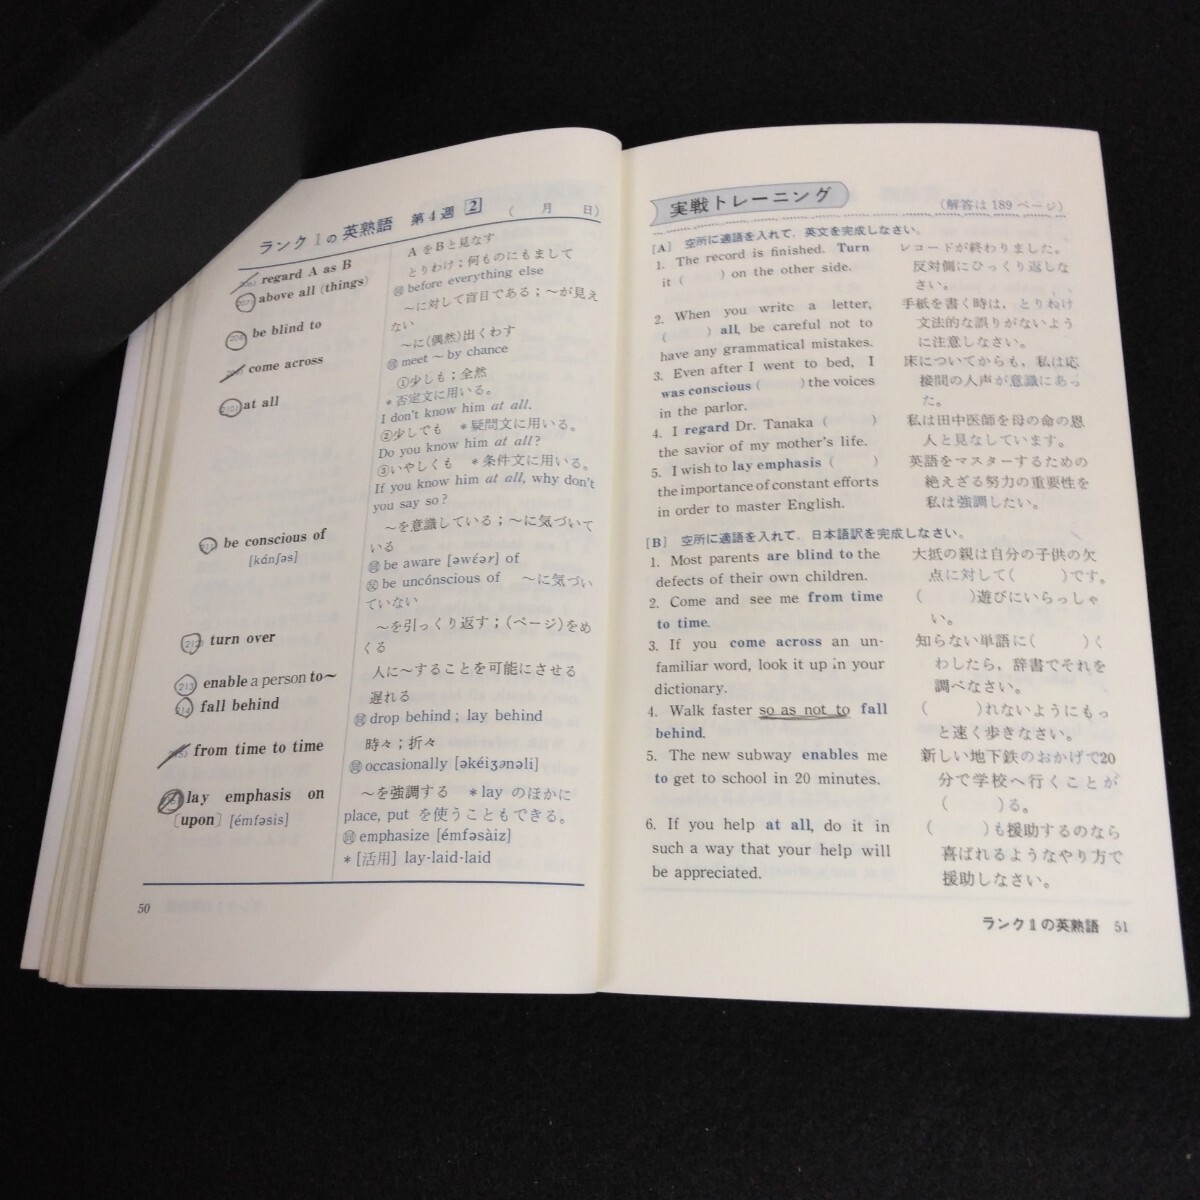 ランク1の英熟語 第4週 2 ( 月 日)
regard A as B
AをBと見なす
207 above all (things)
とりわけ;何ものにもまして
同 before everything else
208 be blind to
〜に対して盲目である;〜が見え
ない
come across
〜に(偶然)出くわす
同 meet 〜 by chance
210 at all
①少しも;全然
*否定文に用いる。
I don't know him at all.
②少しでも *疑問文に用いる。
Do you know him at all?
③いやしくも *条件文に用いる。
If you know him at all, why don't
you say so?
211 be conscious of
[kánʃəs]
〜を意識している;〜に気づいて
いる
同 be aware [əwέər] of
反 be uncónscious of 〜に気づい
ていない
212 turn over
〜を引っくり返す;(ページ)をめ
くる
213 enable a person to〜
人に〜することを可能にさせる
214 fall behind
遅れる
同 drop behind; lay behind
from time to time
時々;折々
同 occasionally [əkéiʒənəli]
lay emphasis on
[upon] [émfəsis]
〜を強調する *lay のほかに
place, put を使うこともできる。
同 emphasize [émfəsàiz]
*[活用] lay-laid-laid
50
実戦トレーニング
(解答は189ページ)
[A] 空所に適語を入れて,英文を完成しなさい。
1. The record is finished. Turn
it ( ) on the other side.
レコードが終わりました。
反対側にひっくり返しな
さい。
2. When you write a letter,
( ) all, be careful not to
have any grammatical mistakes.
手紙を書く時は,とりわけ
文法的な誤りがないよう
に注意しなさい。
3. Even after I went to bed, I
was conscious ( ) the voices
in the parlor.
床についてからも,私は応
接間の人声が意識にあっ
た。
4. I regard Dr. Tanaka ( )
the savior of my mother's life.
私は田中医師を母の命の恩
人と見なしています。
5. I wish to lay emphasis ( )
the importance of constant efforts
in order to master English.
英語をマスターするための
絶えざる努力の重要性を
私は強調したい。
[B] 空所に適語を入れて,日本語訳を完成しなさい。
1. Most parents are blind to the
defects of their own children.
大抵の親は自分の子供の欠
点に対して( )です。
2. Come and see me from time
to time.
( )遊びにいらっしゃ
い。
3. If you come across an un-
familiar word, look it up in your
dictionary.
知らない単語に( )く
わしたら,辞書でそれを
調べなさい。
4. Walk faster so as not to fall
behind.
( )れないようにもっ
と速く歩きなさい。
5. The new subway enables me
to get to school in 20 minutes.
新しい地下鉄のおかげで20
分で学校へ行くことが
( )る。
6. If you help at all, do it in
such a way that your help will
be appreciated.
( )も援助するのなら
喜ばれるようなやり方で
援助しなさい。
ランク1の英熟語 51